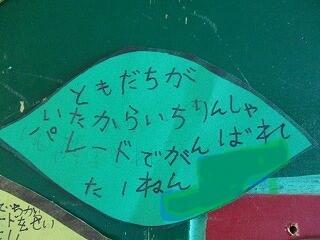 ともだちが
いたからいちりんしゃ
パレードでがんばれ
た 1ねん